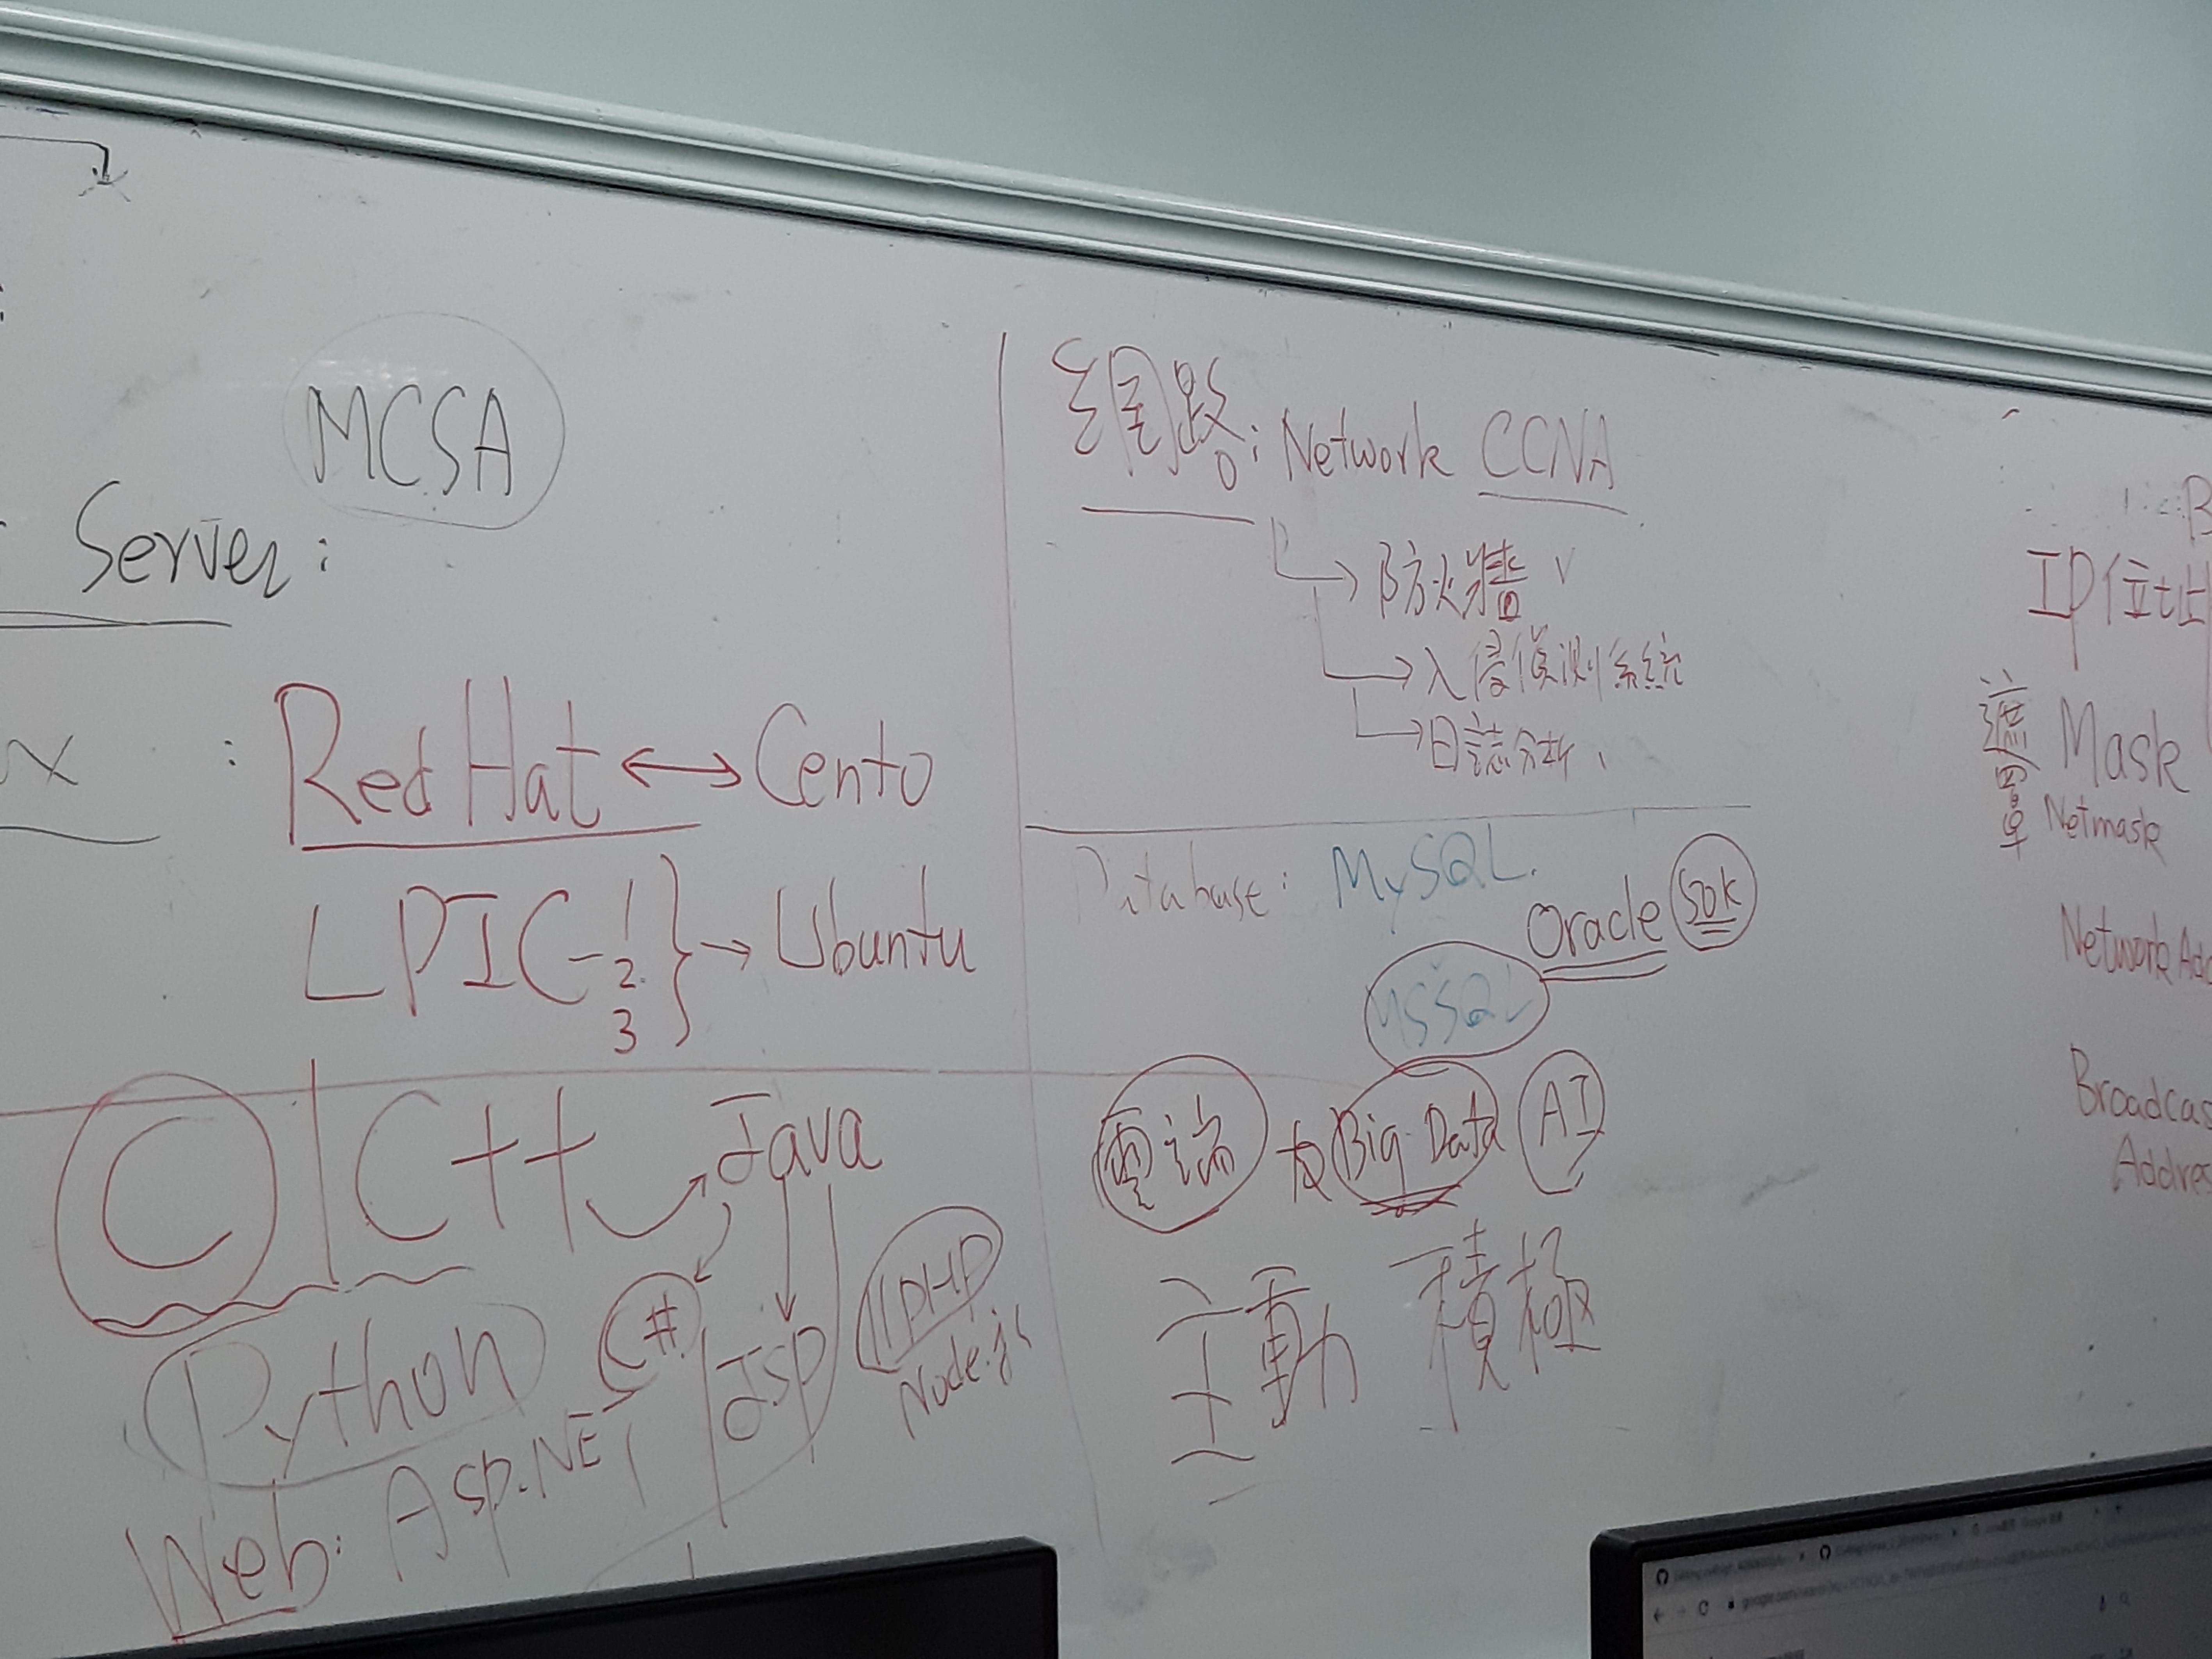 MCSA
Server:
x : Red Hat ↔ Cento
LPIC-1 2. 3 } → Ubuntu
C | C++ Java
Python C# JSP PHP
Node.js
Web: Asp.NET
網路: Network CCNA
→ 防火牆 v
→ 入侵偵測系統
→ 日誌分析、
Database: MySQL.
Oracle SDK
MSSQL
雲端 及 Big Data AI
主動 積極
IP位址
遮罩 Mask
Netmask
Network Add
Broadcas
Addres